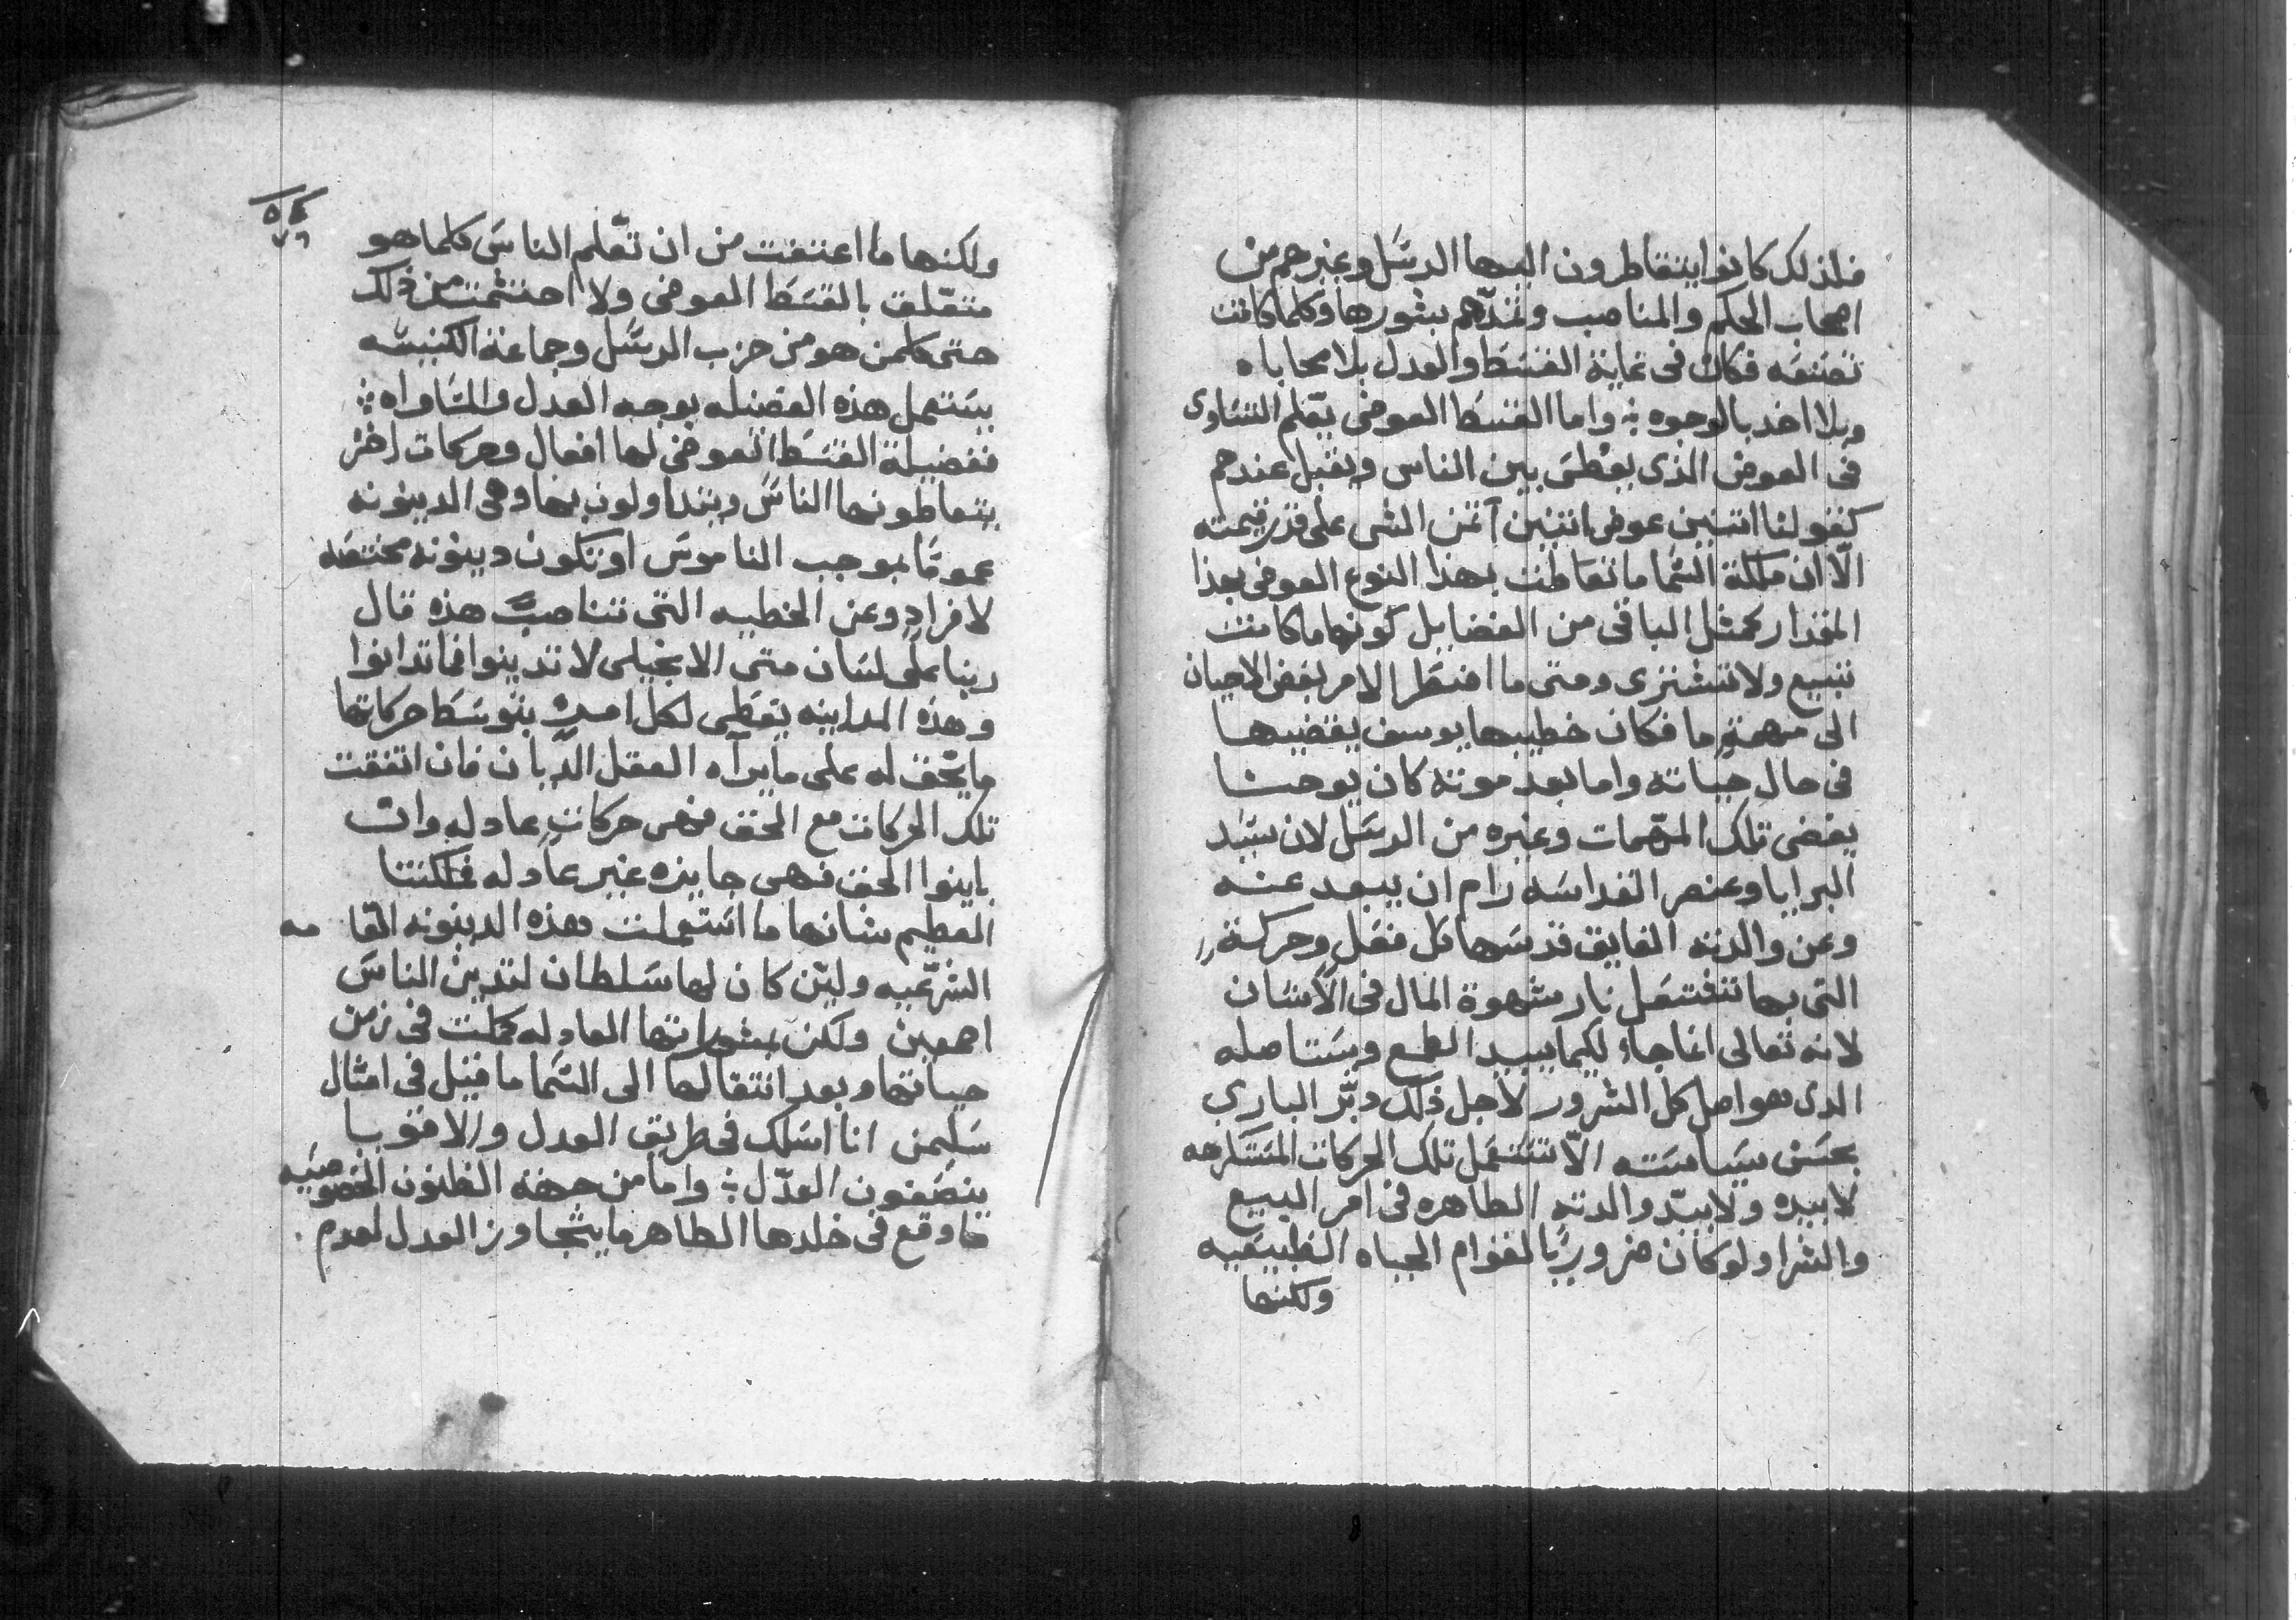 فلذلك كانوا يتقاطرون اليها الرسَل وغيرهم من
اصحاب الحكم والمناصب وتمدّهم بشورها وكلما كانت
تصنعَه فكان في غاية القسَط والعدل بلا محاباه
وبلا اخد بالوجوه ؞ واما القسَط العوضى يعّلم التسَاوى
في العوض الذى يعْطىَ بين الناس ويقبل عندهم
كقولنا اثنين عوض اثنين آ ثمن الشى على قدر قيمته
الّا ان ملكة السَّما ما تعَاطت بهذا النوع العوضى بهذا
المقدار كمثل الباقى من الفضايل كونها ما كانت
تبيع ولا تشترى ومتى ما اضطَر الامر بعَض الاحيان
الى مهمةٍ ما فكان خطيبها يوسف يقضيها
في حال حياته واما بعد موته كان يوحنا
يقضى تلك المهّمات وغيره من الرسَل لان سيَد
البرايا وعنصر القداسَه رام ان يبعد عنه
وعن والدته الفايق قدسَها كل فعَلٍ وحركةٍ
التى بها تنفتعَل نار شهوة المال في الانسَان
لانه تعالى انما جاء لكيما يبيد الطمع ويسَتاصله
الدى هو اصل كل الشرور لاجل ذلك دبّر البارى
بحسَن سيَاسَته الّا تسَتعَمل تلك الحركات المسَتكرهه
لا بيده ولا بيدّ والدته الطاهره في امر البيع
والشرا ولو كان ضروريًا لقوام الحياه الطبيعَيه
ولكنها
ولكنها ما اعتفت من ان تعّلم الناسَ كلما هو
متعّلق بالقسَط العوضى ولا احتشمت من ذلك
حتى كلمن هو من حزب الرسَل وجماعة الكنيسَه
يسَتعمل هذه الفضيله بوجه العدل والمسَاواه ؞
ففضيلة القسَط العوضى لها افعال وحركات اخَر
يتعاطونها الناسَ ويتداولون بها وهى الدينونه
عمومًا بموجب الناموسَ او تكون دينونه مختصَه
لافرادٍ وعن الخطيه التى تناصب هذه قال
ربنا على لسَان متى الانجيلى لا تدينوا فما تدانوا
وهذه المداينه يعَطى لكل امرءٍ بتوسَط حركاتها
ما يحّق له على ما يرآه العقل الديّان فان اتفقت
تلك الحركات مع الحق فهى حركاتٍ عادله وان
باينوا الحق فهى جايزه غير عادله فملكتنا
العظيم شانها ما اسَتعملت هذه الدينونه القامه
الشرعّيه ولين كان لها سَلطان لتدين الناسَ
اجمعين ولكن بشوراتها العادله كملت في زمن
حياتها وبعد انتقالها الى السَما ما قيل في امثال
سَليمن انا اسَلك في طريق العدل والاقويا
ينصَفون العدّل ؞ واما من جهة الظنون الخصوصيَه
ما وقع في خلدها الطاهر ما يتجاوز العدل لعدم